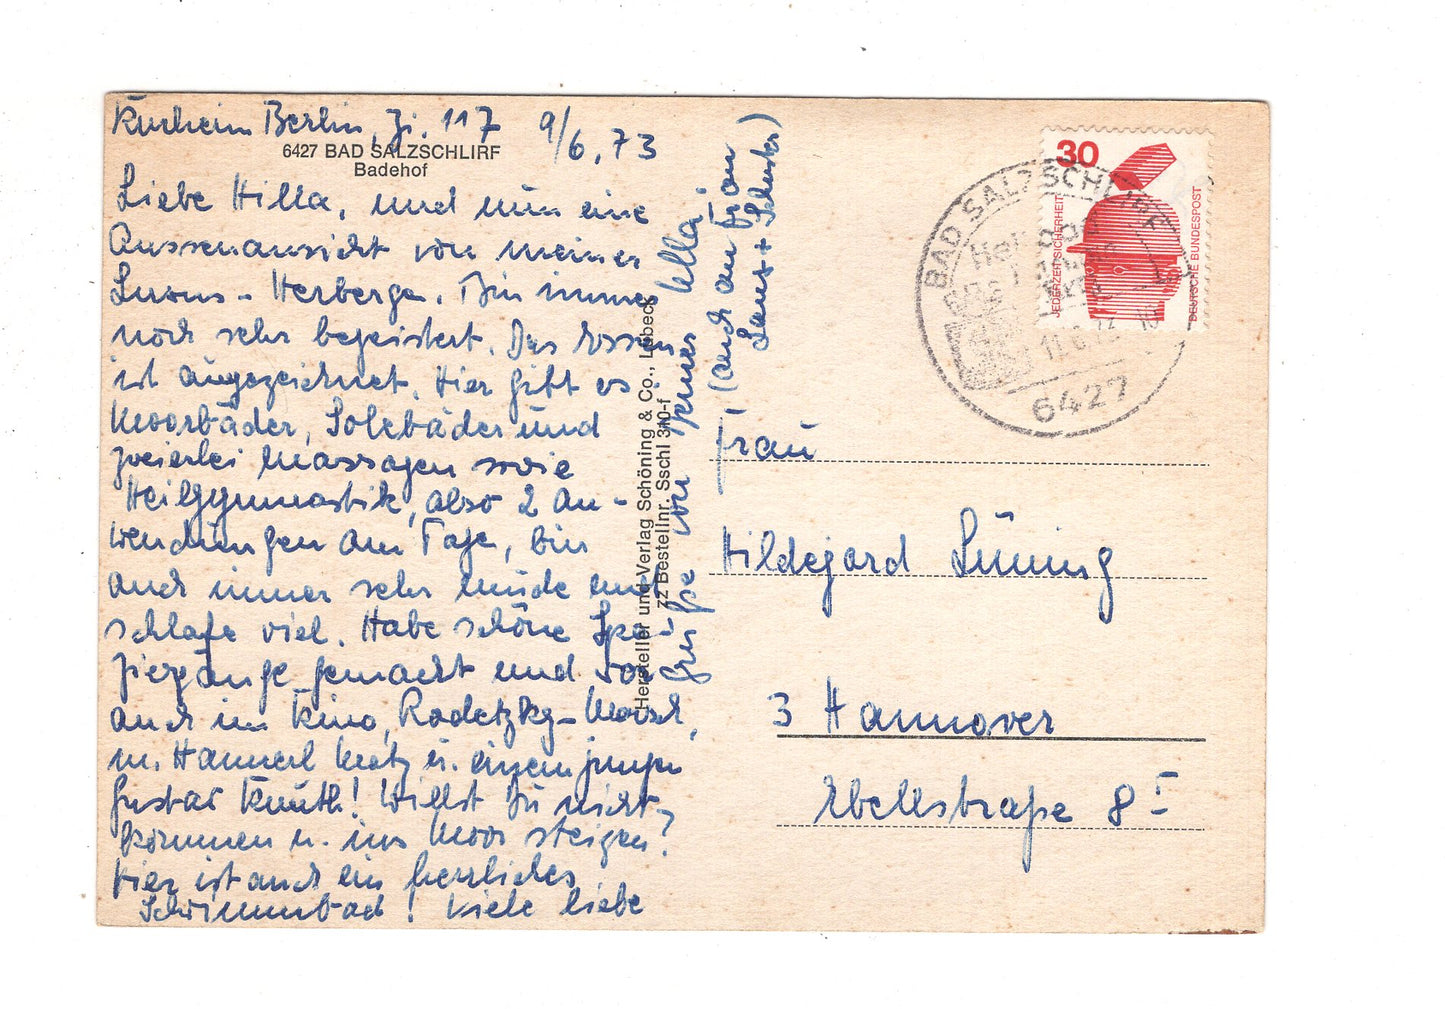 Kurheim Berlin, Zi. 117 9/6.73
6427 BAD SALZSCHLIRF
Badehof
Liebe Hilla, und nun eine
Aussenansicht von meiner
Luxus-Herberge. Bin immer
noch sehr begeistert. Das Essen
ist ausgezeichnet. Hier gibt es
Moorbäder, Solebäder und
zweierlei Massagen sowie
Heilgymnastik, also 2 An-
wendungen am Tage, bin
auch immer sehr müde und
schlafe viel. Habe schöne Spa-
ziergänge gemacht und war
auch im Kino, Radetzky-Marsch,
m. Hannerl Matz u. einem jungen
Gustav Knuth! Willst Du nicht
kommen u. ins Moor steigen?
Hier ist auch ein herrliches
Schwimmbad! Viele liebe
Grüsse von Deiner Ulla
(auch an Frau
Hersteller und Verlag Schöning & Co., Lübeck
zz Bestellnr. Sschl 310-f
30
JEDERZEIT SICHERHEIT
DEUTSCHE BUNDESPOST
BAD SALZSCHLIRF
11.6.73
6427
Frau
Hildegard Lüning
3 Hannover
Ebellstraße 8 I